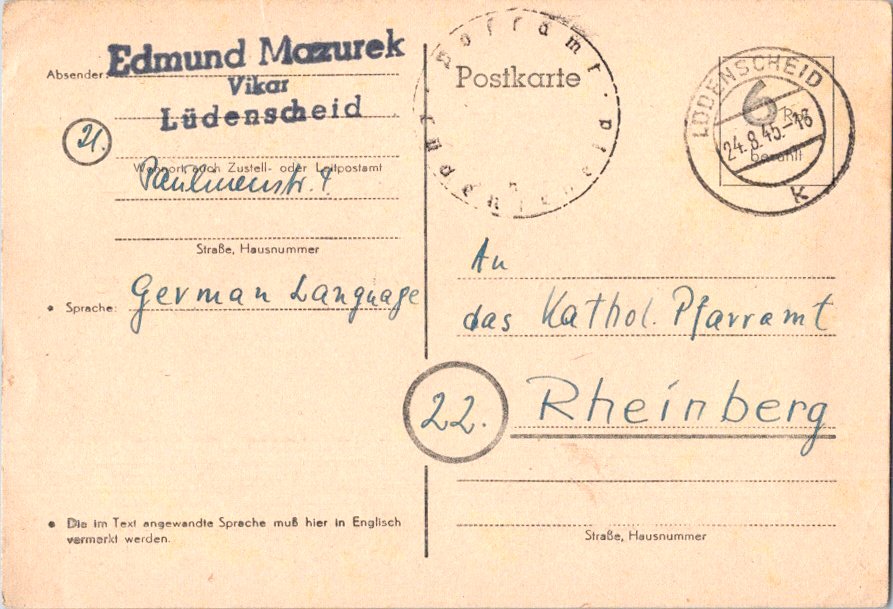 Absender:
Edmund Mazurek
Vikar
Lüdenscheid
21.
Wohnort, auch Zustell- oder Leitpostamt
Paulinenstr. 4
Straße, Hausnummer
• Sprache: German Language
• Die im Text angewandte Sprache muß hier in Englisch
vermerkt werden.
Postkarte
LÜDENSCHEID
6 Rpf
24.8.45.-18
bezahlt
k
An
das Kathol. Pfarramt
22. Rheinberg
Straße, Hausnummer